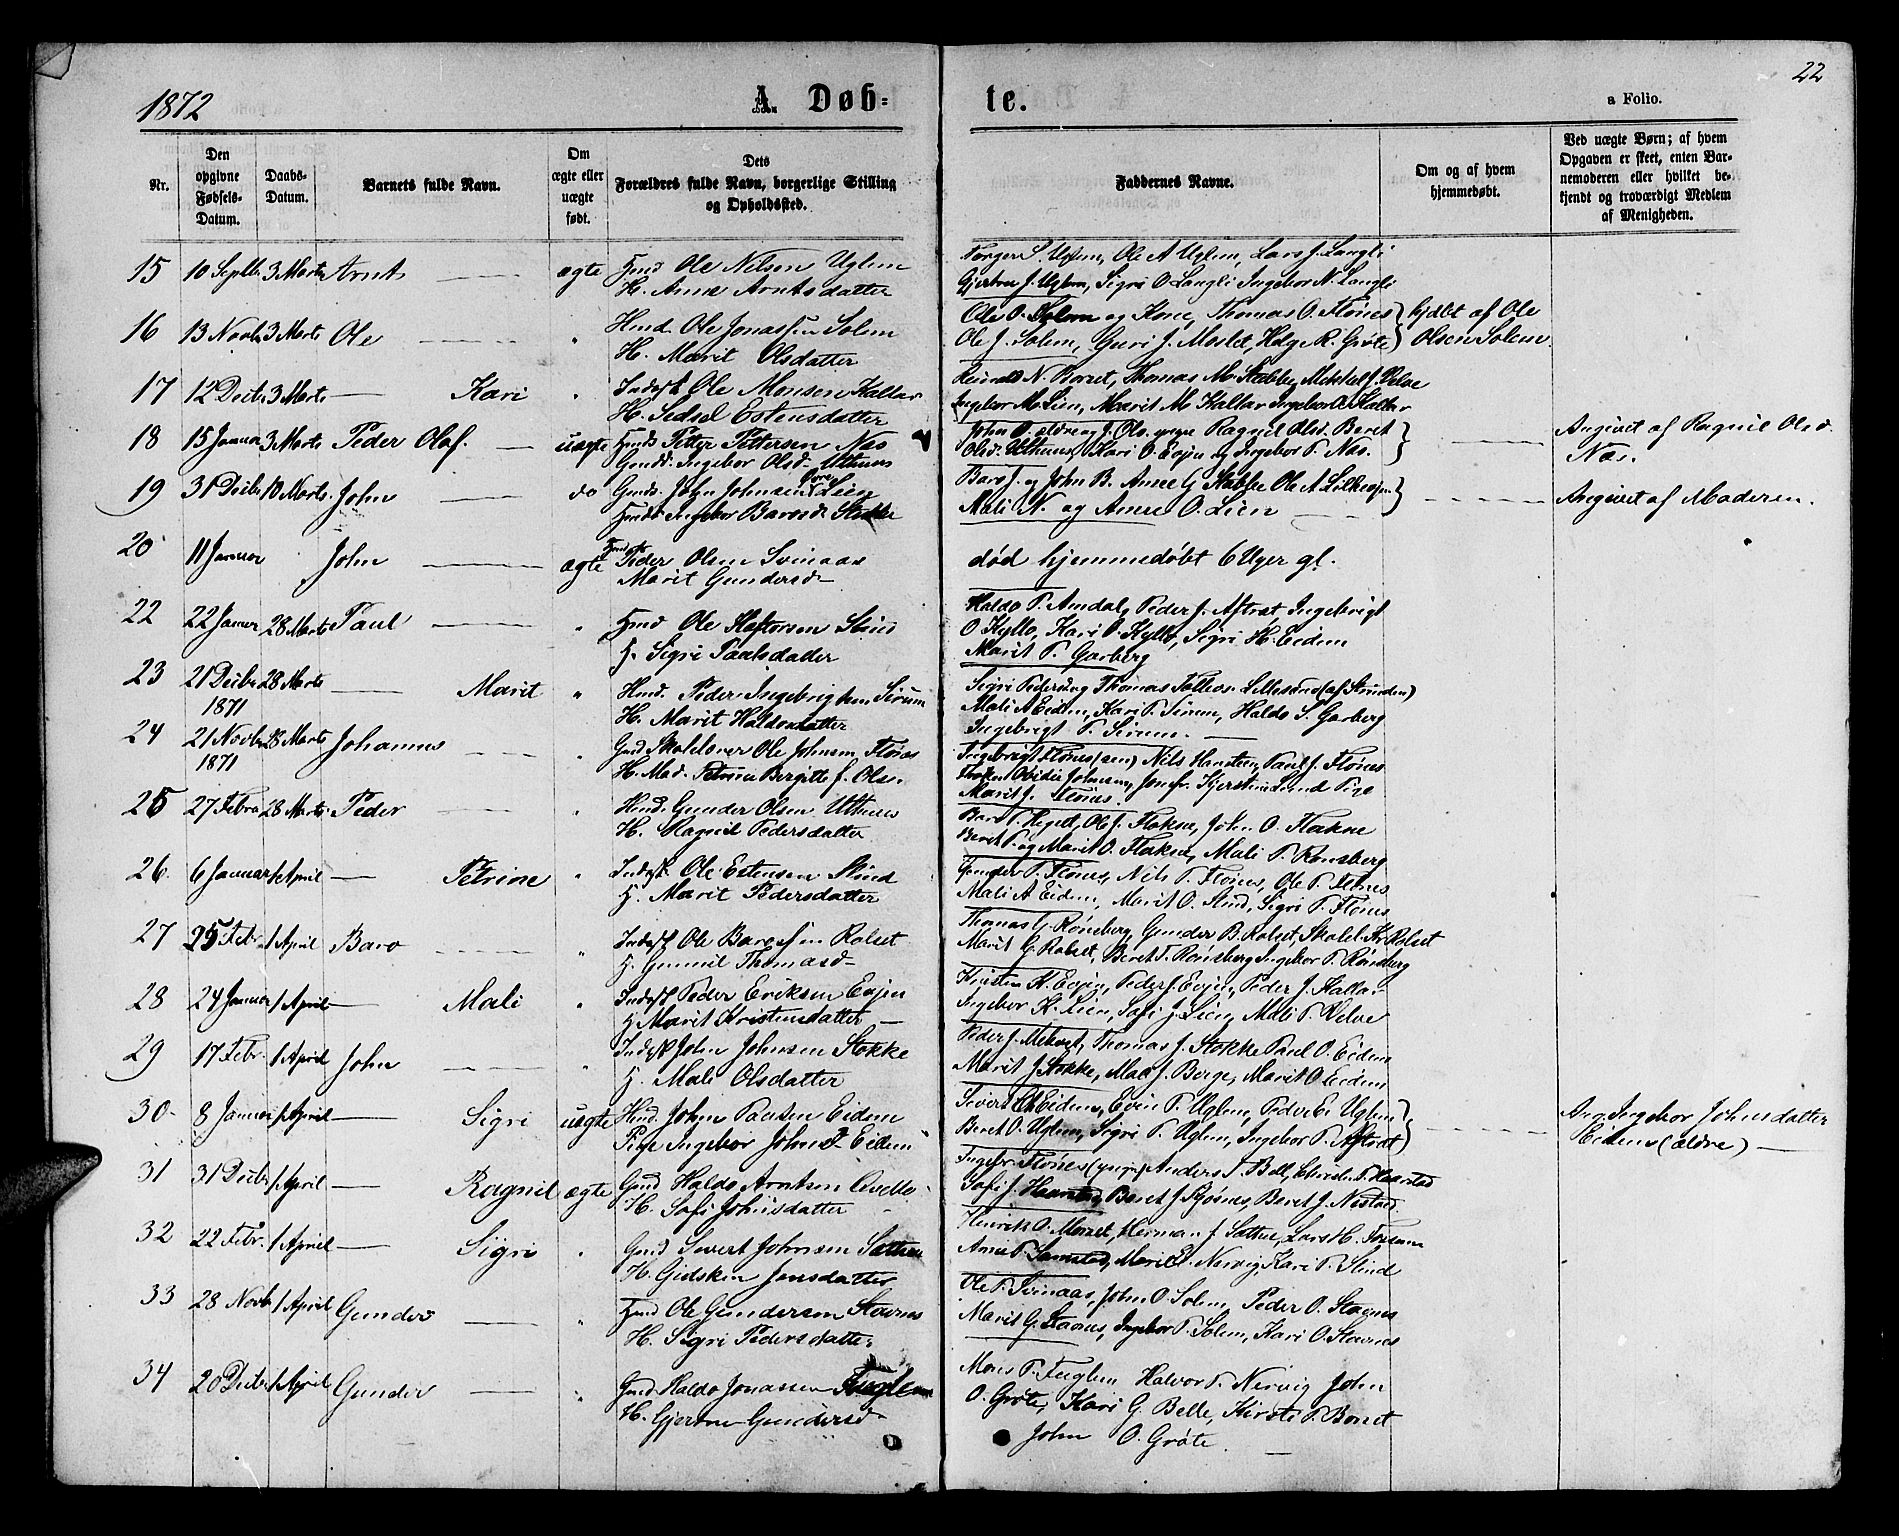 1872
A. Døb-
te.
a Folio.
22
Nr.
Den opgivne Fødsels-Datum.
Daabs-Datum.
Barnets fulde Navn.
Om ægte eller uægte født.
Dets Forældres fulde Navn, borgerlige Stilling og Opholdssted.
Faddernes Navne.
Om og af hvem hjemmedøbt.
Ved uægte Børn; af hvem Opgaven er skeet, enten Barnemoderen eller hvilket bekjendt og troværdigt Medlem af Menigheden.
15 10 Septb. 3 Marts Arnt ægte Hmd Ole Nilsen Uglem
H. Anne Arntsdatter
S. Uglem, Ole A Uglem, Lars J. Langli
J. Uglem, Sigri O Langli Ingebor N. Langli
16 13 Novb. 3 Marts Ole " Hmd. Ole Jonassen Solem
H. Marit Olsdatter
Ole O. Solem og Kone, Thomas O. Flønes
Ole J. Solem, Guri J. Moslet, Helge R. Grøte
hjdbt af Ole
Olsen Solem
17 12 Decbr 3 Marts Kari " Inderst Ole Monsen Kallar
H. Sedsel Estensdatter
N. Borset, Thomas M. Stubbe, Mikkel J. Velve
Ingebor M. Lien, Marit M Kallar Ingebor O. Kallar
18 15 Januar 3 Marts Peder Olaf. uægte Hmds. Petter Pettersen Næs
Gmdd. Ingebor Olsd. Uthuus
John O. ældre og J. Ols. yngre Ragnil Olsd. Beret
Olsd. Uthuus, Kari O. Evjen og Ingebor P. Næs.
Angivet af Ragnil Olsd.
Næs.
19 31 Decbr 10 Marts. John do Gmds. John Johnsen Lien
Hmdd. Ingebor Baroesd. Stokke
Baro J. og John B. Anne G Stokke Ole A Lilleevjen
Mali N. og Anne O. Lien
Angivet af Moderen.
20 11 Januar John ægte Peder Olsen Svinaas
Marit Gundersd
død hjemmedøbt 6 Uger gl.
22 22 Januar 28 Marts Paul " Hmd Ole Haftorsen Slind
H. Sigri Paulsdatter
Haldo P. Amdal, Peder J. Aftret, Ingebrigt
O Kyllo, Kari O. Kyllo, Sigri H. Eidem
Marit P. Garberg
23 21 Decbr 28 Marts Marit " Hmd. Peder Ingebrigtsen Sirum
1871
H. Marit Haldosdatter
Sigri Pedersd og Thomas Lillesand (af Strinden)
Mali A Eidem, Kari P. Sirum, Haldo S. Garberg
Ingebrigt P. Sirum.
24 21 Novbr 28 Marts Johannes " Gmd Skolelærer Ole Johnsen Flønes
1871
H. Mad. Petrine Bergitte f. Ols.
Ingebrigt Flønes (sen) Nils Hansten, Paul J. Flønes
Johnsen, Jomfr. Kjerstine Lund Pige
Marit J. Flønes.
25 27 Febr 28 Marts Peder " Hmd. Gunder Olsen Uthuus
H. Ragnil Pedersdatter
Baro P. Heget, Ole J. Flaksne, John O. Flaksne
Beret P. og Marit O. Flaksne, Mali P. Rønsberg
26. 6 Januar 1 April Petrine " Inderst Ole Estensen Slind
H. Marit Pedersdatter
Gunder P. Flønes, Nils P. Flønes, Ole P. Flønes
Mali A Eidem, Marit O. Slind, Sigri P. Flønes
27 25 Febr 1 April Baro " Inderst Ole Baroesen Rolset
H. Gunnil Thomasd
Thomas G. Rønsberg, Gunder B. Rolset, Skolel. Kr. Rolset
Marit G. Rolset, Beret T. Rønsberg Ingebor P. Rønsberg
28 24 Januar 1 April Mali " Inderst Peder Eriksen Evjen
H Marit Kristensdatter
Kristen K. Evjen, Peder J. Evjen, Peder J. Kallar
Ingebor K. Lien, Sofi J. Lien, Mali P. Velve
29 17 Febr. 1 April John " Inderst John Johnsen Stokke
H. Mali Olsdatter
Peder J. Mebust, Thomas J. Stokke Paul O. Eidem
Marit J Stokke, Mali J. Berge, Marit O Eidem
30 8 Januar 1 April Sigri uægte Hmd. John Paulsen Eidem
Pige Ingebor Johnsd. Eidem
Sivert Eidem, Even P. Uglem, Peder E. Uglem
Beret O. Uglem, Sigri P. Uglem, Ingebor P. Aftret
Ang. Ingebor Johnsdatter
Eidem (ældre)
31 31 Decbr 1 April Ragnil ægte Gmd Haldo Arntsen Avelle
H. Sofi Johnsdatter
Flønes (yngre) Anders T. Bell, P. Haarstad
Sofi J. Haarstad, Beret J. Kjøsnes, Beret J. Nestad
32 22 Febr. 1 April Sigri " Gmd Sivert Johnsen Sæther
H. Gidsken Jonsdatter
Henrik O. Morset, Herman J. Sæther, Lars H. Fossum
Ane P. Samstad, Marit E. Nervig, Kari P. Slind
33 28 Novb 1 April Gunder " Hmd Ole Gundersen Stavnes
H. Sigri Pedersdatter
Ole P. Svinaas, John O. Solem, Peder O. Stavnes
Marit G. Stavnes, Ingebor P. Solem, Kari O. Stavnes
34 20 Decbr 1 April Gunder " Gmd. Haldo Jonassen Fuglem
H. Gjertru Gundersd
Mons P. Fuglem Halvor P. Nervig John
O. Grøte, Kari G. Belle, Kirsti P. Borset
John O. Grøte.